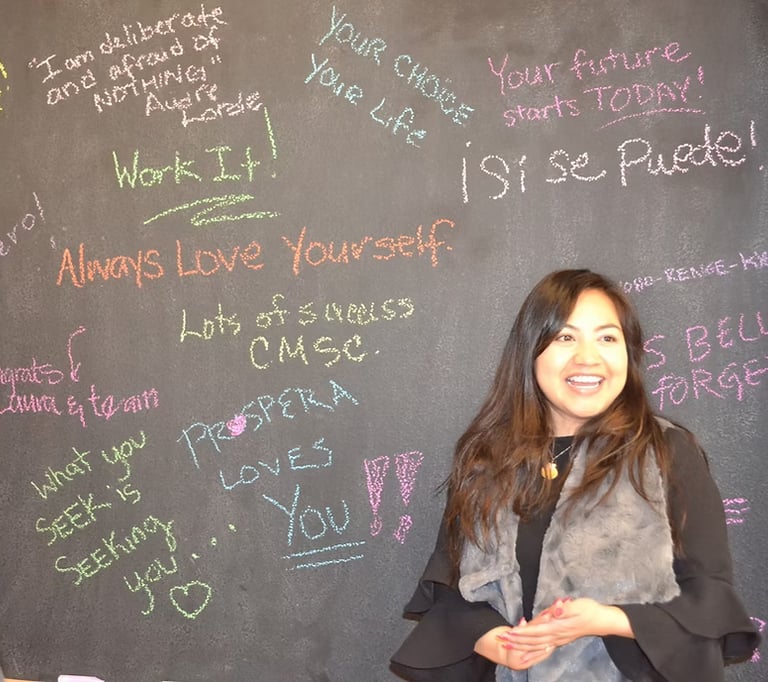 "I am deliberate
and afraid of
NOTHING"
Audre
Lorde
YOUR CHOICE
Your Life
Your future
starts TODAY!
Work It!
¡Si se Puede!
Always Love Yourself.
Lots of success
CMSC.
Laura & team
PROSPERA
LOVES
YOU!!
What you
SEEK is
SEEKing
you....
-RENGE-
BELL